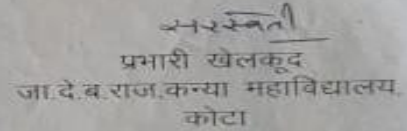 सरस्वती
प्रभारी खेलकूद
जा.दे.ब.राज.कन्या महाविद्यालय,
कोटा